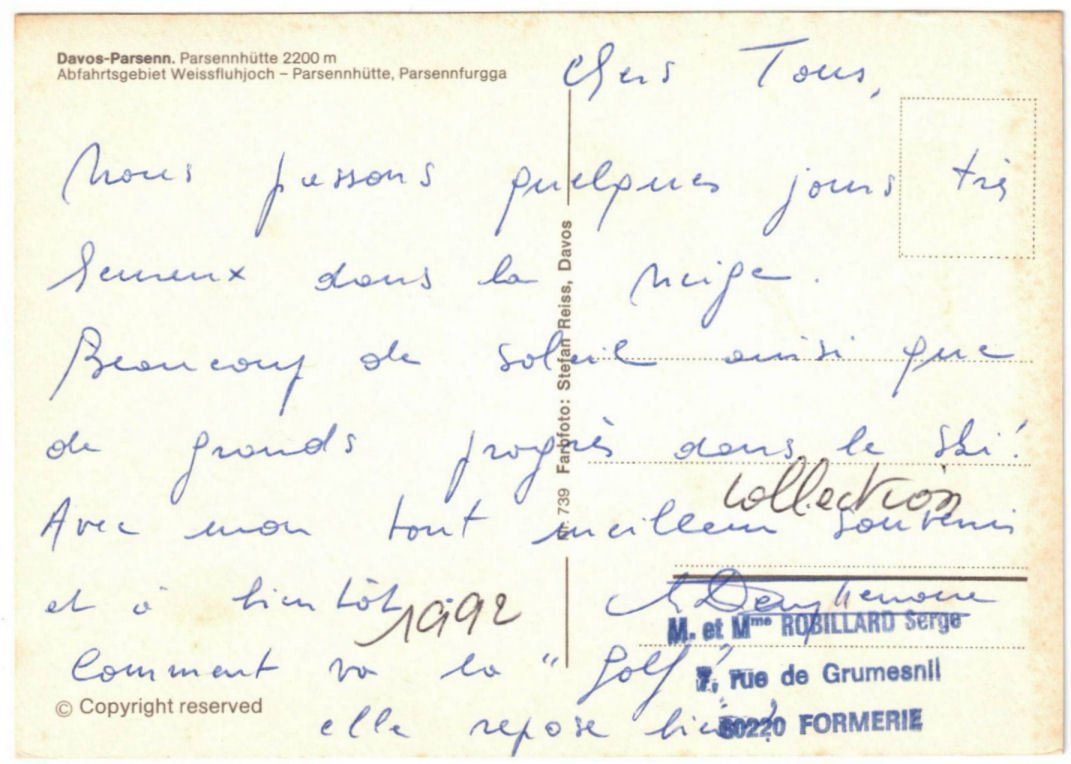 Davos-Parsenn. Parsennhütte 2200 m
Abfahrtsgebiet Weissfluhjoch – Parsennhütte, Parsennfurgga
Chers Tous,
Nous passons quelques jours très
heureux dans la neige.
Beaucoup de soleil ainsi que
de grands progrès dans le ski!
Avec mon tout meilleur souvenir
et à bientôt
Comment va la "Golf"
elle repose bien
Nr. 739 Farbfoto: Stefan Reiss, Davos
collection
1992
M. et Mme ROBILLARD Serge
7, rue de Grumesnil
60220 FORMERIE
© Copyright reserved